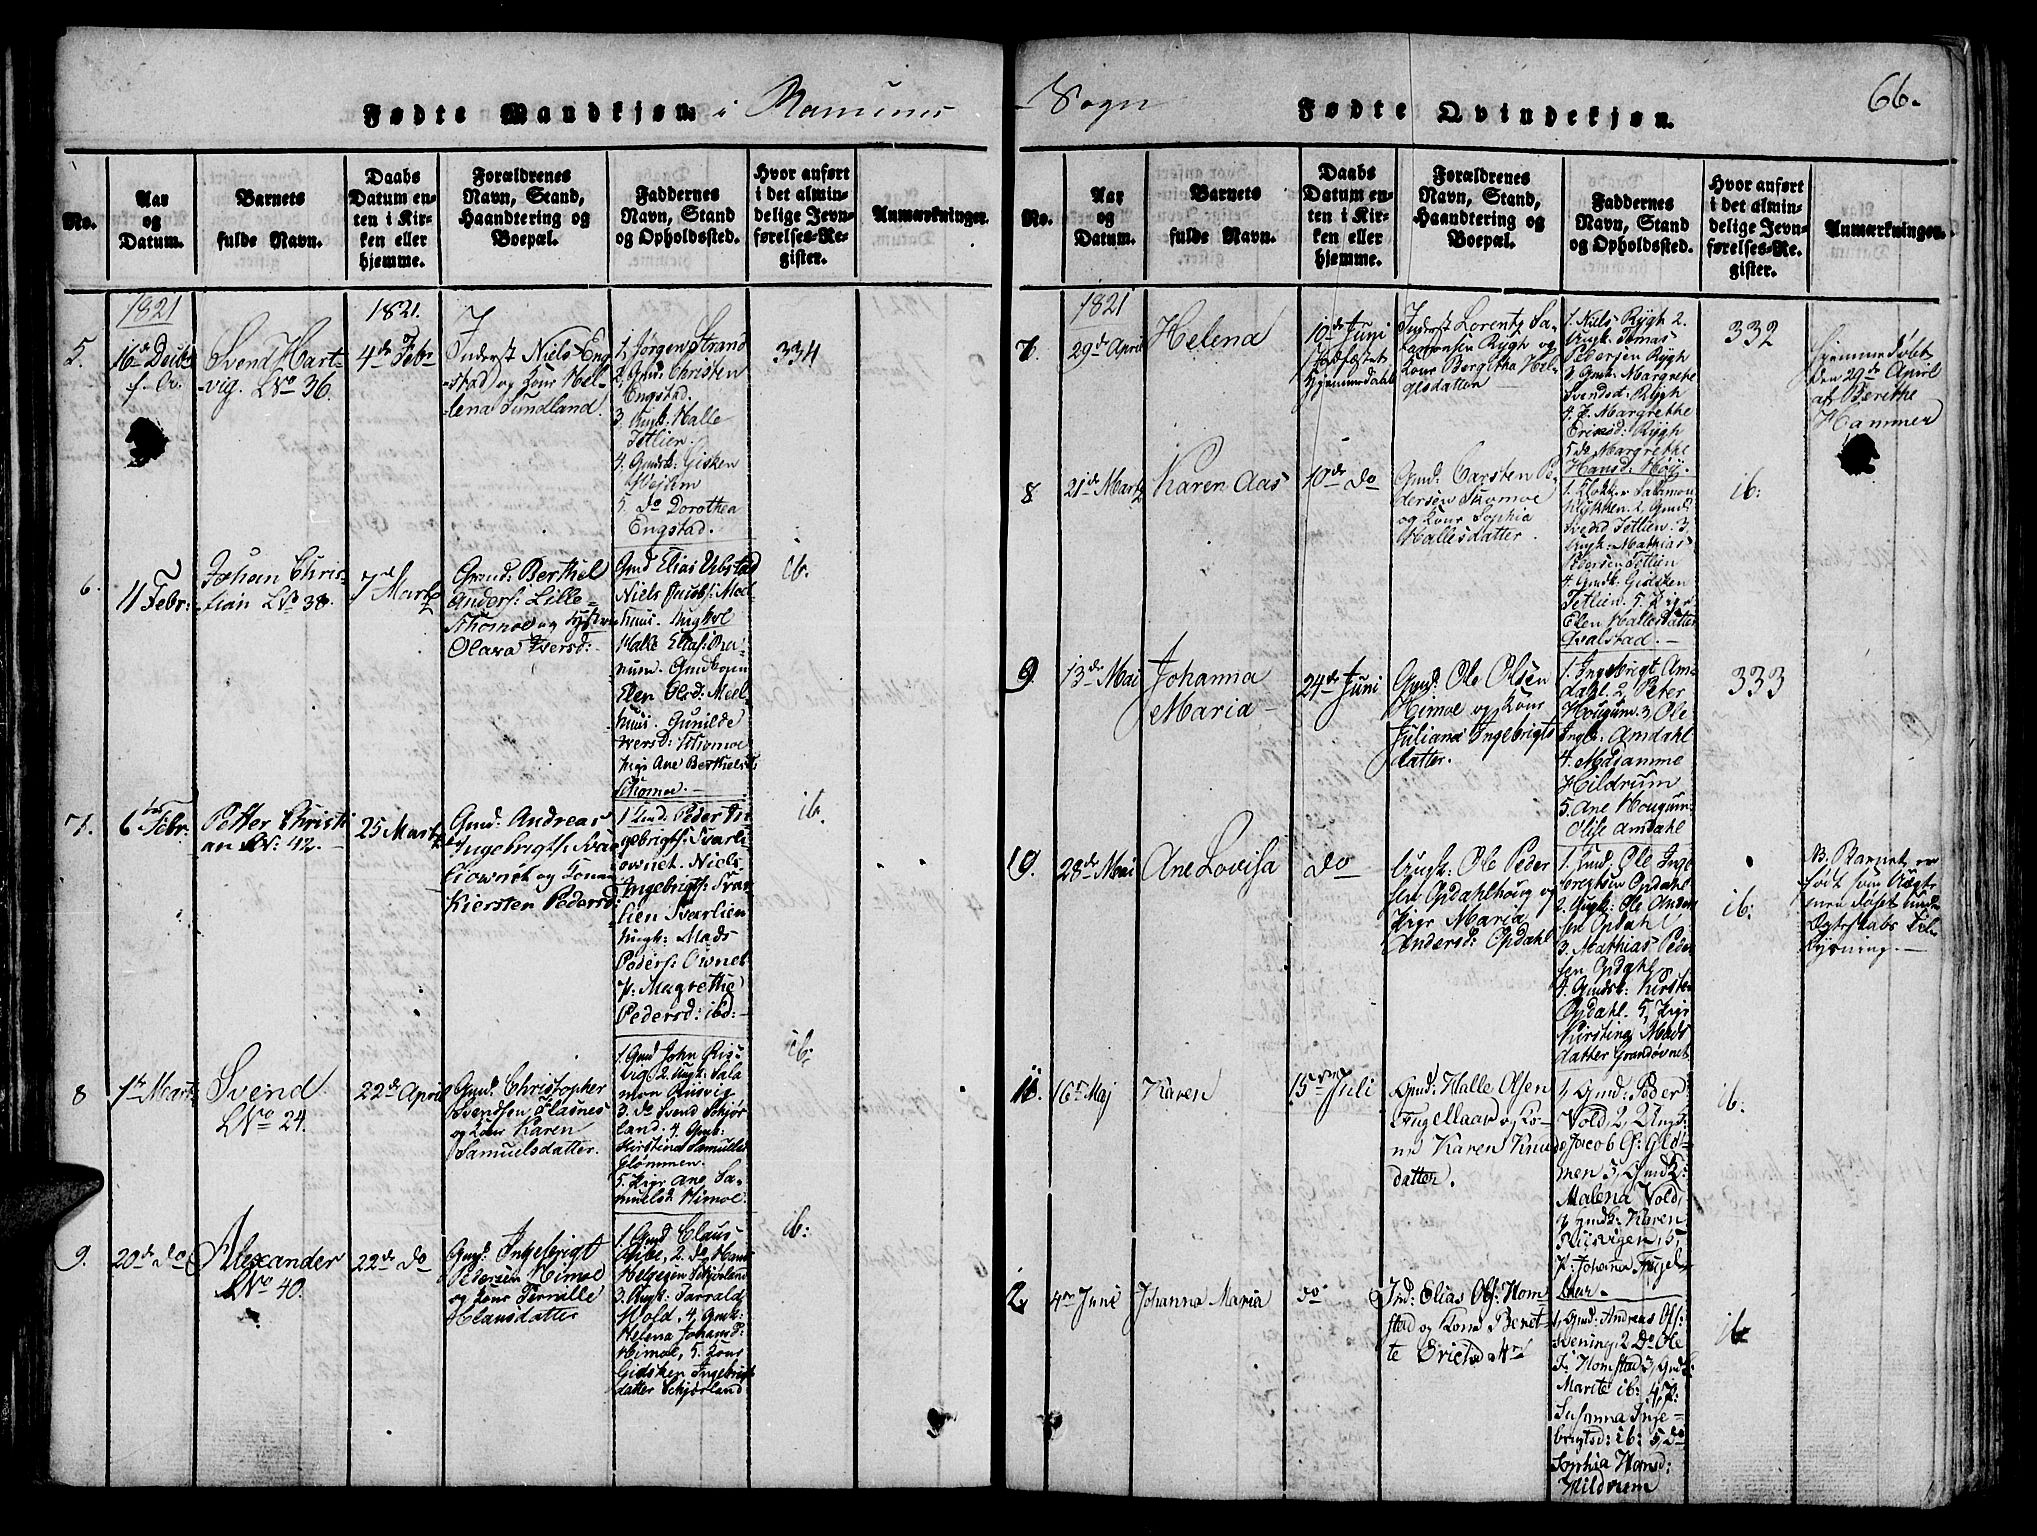 Fødte Mandkjøn. i Ranumes
No.
Aar
og
Datum.
Barnets
fulde Navn.
Daabs
Datum en-
ten i Kir-
ken eller
hjemme.
Forældrenes
Navn, Stand,
Haandtering og
Boepæl.
Faddernes
Navn, Stand
og Opholdssted.
Hvor anført
i det almin-
delige Jevn-
førelses-Re-
gister.
Anmærkninger.
1821
5.
16de Decbr
f. A.
Svend Hart-
vig. LNo 36.
1821.
4de Febr
Inderst Niels Eng-
stad og Kone Hel-
lena Sundland.
1. Jørgen Strand
2. Gmd: Christen
Engstad.
3. Ungk: Halle
Tetlien.
4. Gmdk: Gisken
Vejhm
5. Do Dorothea
Engstad.
334
6.
11 Febr:
Johan Chris-
tian LNo 38.
7de Martz
Gmd: Berthel
Anders: Lille-
Skomoe og Hustrue
Olava Iversd:
Gmd Elias Ubstad
Niels Jacobs: Mel-
huus. Ungkrl
Halle Elias: Ra-
num. Gmdkonen
Elen Olsd: Miel-
huus. Gunilde
Iversd: Skomoe
Pige Ane Berthelsd:
Skomoe.
ib.
7.
6te Febr.
Petter Christi
an LNo: 42.
25 Martz
Gmd: Andreas
Ingebrigts: Svar-
liownet og Konen
Kiersten Pedersd:
1 Gmd: Peder In-
gebrigts: Svarli-
ownet. Niels
Ingebrigts: Svar-
lien Svarlien
Ungk: Mads
Peders: Ownet
P: Magrethe
Pedersd: ibd:
ib.
8
7de Martz
Svend
LNo 24.
22de April
Gmd: Christopher
Svendsen Flasnes
og Kone Karen
Samuelsdatter.
1. Gmd John Riis-
vig 2. Ungk: Sala
mon Riisvig
3. do Svend Schjør
land. 4. Gmk:
Kirstina Samuelsd
Glømmen.
5. Pige Ane Sa-
muelsd: Himoe.
ib:
9.
20de do
Alexander
LNo 40.
22de do
Gmd: Ingebrigt
Pedersen Himoe
og Kone Pernille
Klausdatter
1. Gmd Claus
Aple, 2. do Hans
Helgesen Schjørland
3. Ungk: Harrald
Wold, 4, Gmk:
Helena Johansd:
Himoe, 5. Kone
Gidsken Ingebrigts
datter Schjørland
ib:
Sogn
Fødte Qvindekjøn.
66.
No.
Aar
og
Datum.
Barnets
fulde Navn.
Daabs
Datum en-
ten i Kir-
ken eller
hjemme.
Forældrenes
Navn, Stand,
Haandtering og
Boepæl.
Faddernes
Navn, Stand
og Opholdssted.
Hvor anført
i det almin-
delige Jevn-
førelses-Re-
gister.
Anmærkninger.
1821
7.
29de April
Helena
10de Juni
Stadfæstet
Hjemmedaab
Inderst Lorentz Sa-
lamonsen Rygh og
Kone Bergitha Hel-
gesdatter
1. Niels Rygh 2.
Ungk: Tomas
Pedersen Rygh
3 Gmk: Margrethe
Svendsd: Rygh
4. P. Margrethe
Ericksd: Rygh
5 do Margrethe
Hansd: Møy.
332
Hjemmedøbt
den 29de April
af Berethe
Hammer
8
21de Martz
Karen Aas
10de do
Gmd: Carsten Pe-
dersen Skomoe
og Kone Sophia
Hallesdatter.
1. Klokker Salamon
Lykken. 2, Gmd:
Svend Tetlien. 3,
Ungk: Mathias
Pedersen Tetlien
4. Gmdk: Gidsken
Tetlien. 5. Pige
Elen Hallesdatter
Qvalstad.
ib:
9.
13de Mai
Johanna
Maria
24de Juni
Gmd: Ole Olsen
Himoe og Kone
Juliana Ingebrigts
datter.
1. Ingebrigt Am-
dahl. 2, Peter
Hougum 3, Ole
Ingb: Amdahl
4. Madamme
Hildrum
5. Ane Hougum
Olise Amdahl
333
10.
28de Mai
Ane Lovisa
do
Ungk: Ole Peder
sen Opdahlhoug og
Pige Maria
Andersd: Opdahl
1. Gmd: Ole Inge
brigtsen Opdahl
2. Ungk: Ole Ander
sen Opdahl
3. Mathias Peder
sen Opdahl
4. Gmdk: Kirsten
Opdahl. 5, Pige
Kirstina Mads
datter Grandøvnet
ib:
NB. Barnet er
født som Ægte
men døbt under
Ægteskabs Til-
lysning.
11.
16de Maj
Karen
15de Juli
Gmd: Halle Olsen
Fugellaar og Ko-
ne Karen Knuds
datter.
1, Gmd: Peder
Vold, 2, 2 Ungd:
Jacob Ol: Glöm-
men 3, Gmdk:
Malena Vold,
4 Gmdk: Karen
Riisvigen, 5,
P: Johanna Fugel-
laar.
ib:
2,
4de June
Johanna Maria
do
Ind: Elias Ols: Hom-
stad og Kone Beret-
te Ericksdatr
1, Gmd: Andreas Ols:
Svening, 2 Do Ole
J: Homstad 3, Gmdk:
Marite ib: 4, P:
Susanna Inge-
brigtsd: ib: 5 Do
Sophia Hansd:
Hildrum
ib